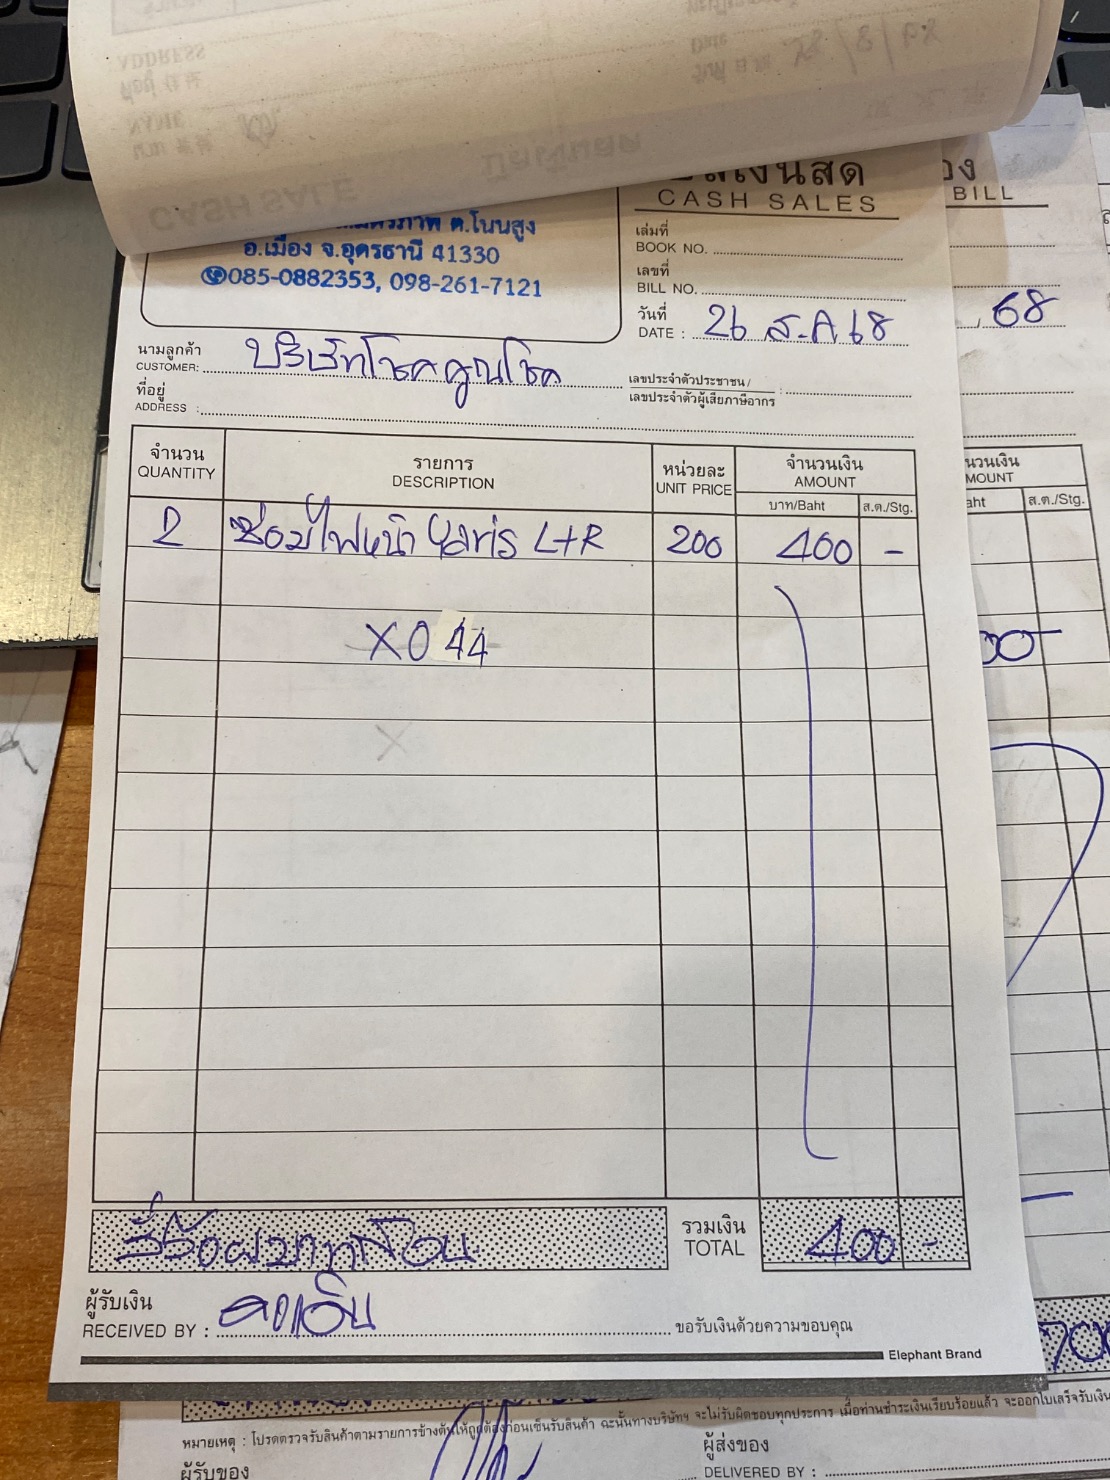 CASH SALE
ต.โนนสูง
อ.เมือง จ.อุดรธานี 41330
085-0882353, 098-261-7121
CASH SALES
เล่มที่
BOOK NO.
เลขที่
BILL NO.
วันที่
DATE : 26 ส.ค 68
นามลูกค้า
CUSTOMER: บริษัทโชคคูณโชค
ที่อยู่
ADDRESS :
เลขประจำตัวประชาชน/
เลขประจำตัวผู้เสียภาษีอากร
จำนวน
QUANTITY
รายการ
DESCRIPTION
หน่วยละ
UNIT PRICE
จำนวนเงิน
AMOUNT
บาท/Baht ส.ต./Stg.
2 ซ่อมไฟหน้า Yaris L+R 200 400 -
XO 44
X
รวมเงิน
TOTAL 400 -
ผู้รับเงิน
RECEIVED BY :
ขอรับเงินด้วยความขอบคุณ
Elephant Brand
BILL
68
นวนเงิน
MOUNT
aht ส.ต./Stg.
หมายเหตุ : โปรดตรวจรับสินค้าตามรายการข้างต้นให้ถูกต้องก่อนเซ็นรับสินค้า ฉะนั้นทางบริษัทฯ จะไม่รับผิดชอบทุกประการ เมื่อท่านชำระเงินเรียบร้อยแล้ว จะออกใบเสร็จรับเงิน
ผู้รับของ
ผู้ส่งของ
DELIVERED BY :